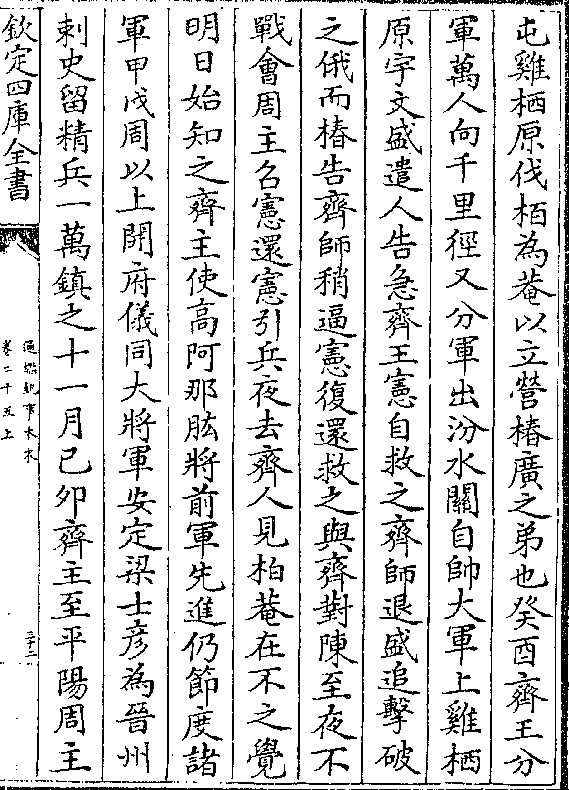 屯雞栖原伐栢為菴以立營椿廣之弟也癸酉齊王分
軍萬人向千里徑又分軍出汾水關自帥大軍上雞栖
原宇文盛遣人告急齊王憲自救之齊師退盛追擊破
之俄而椿告齊師稍逼憲復還救之與齊對陳至夜不
戰會周主召憲還憲引兵夜去齊人見柏菴在不之覺
明日始知之齊主使高阿那肱將前軍先進仍節度諸
軍甲戌周以上開府儀同大將軍安定梁士彦為晉州
刺史留精兵一萬鎮之十一月己夘齊主至平陽周主
欽定四庫全書
通鑑紀事本末
卷二十五上
三十二